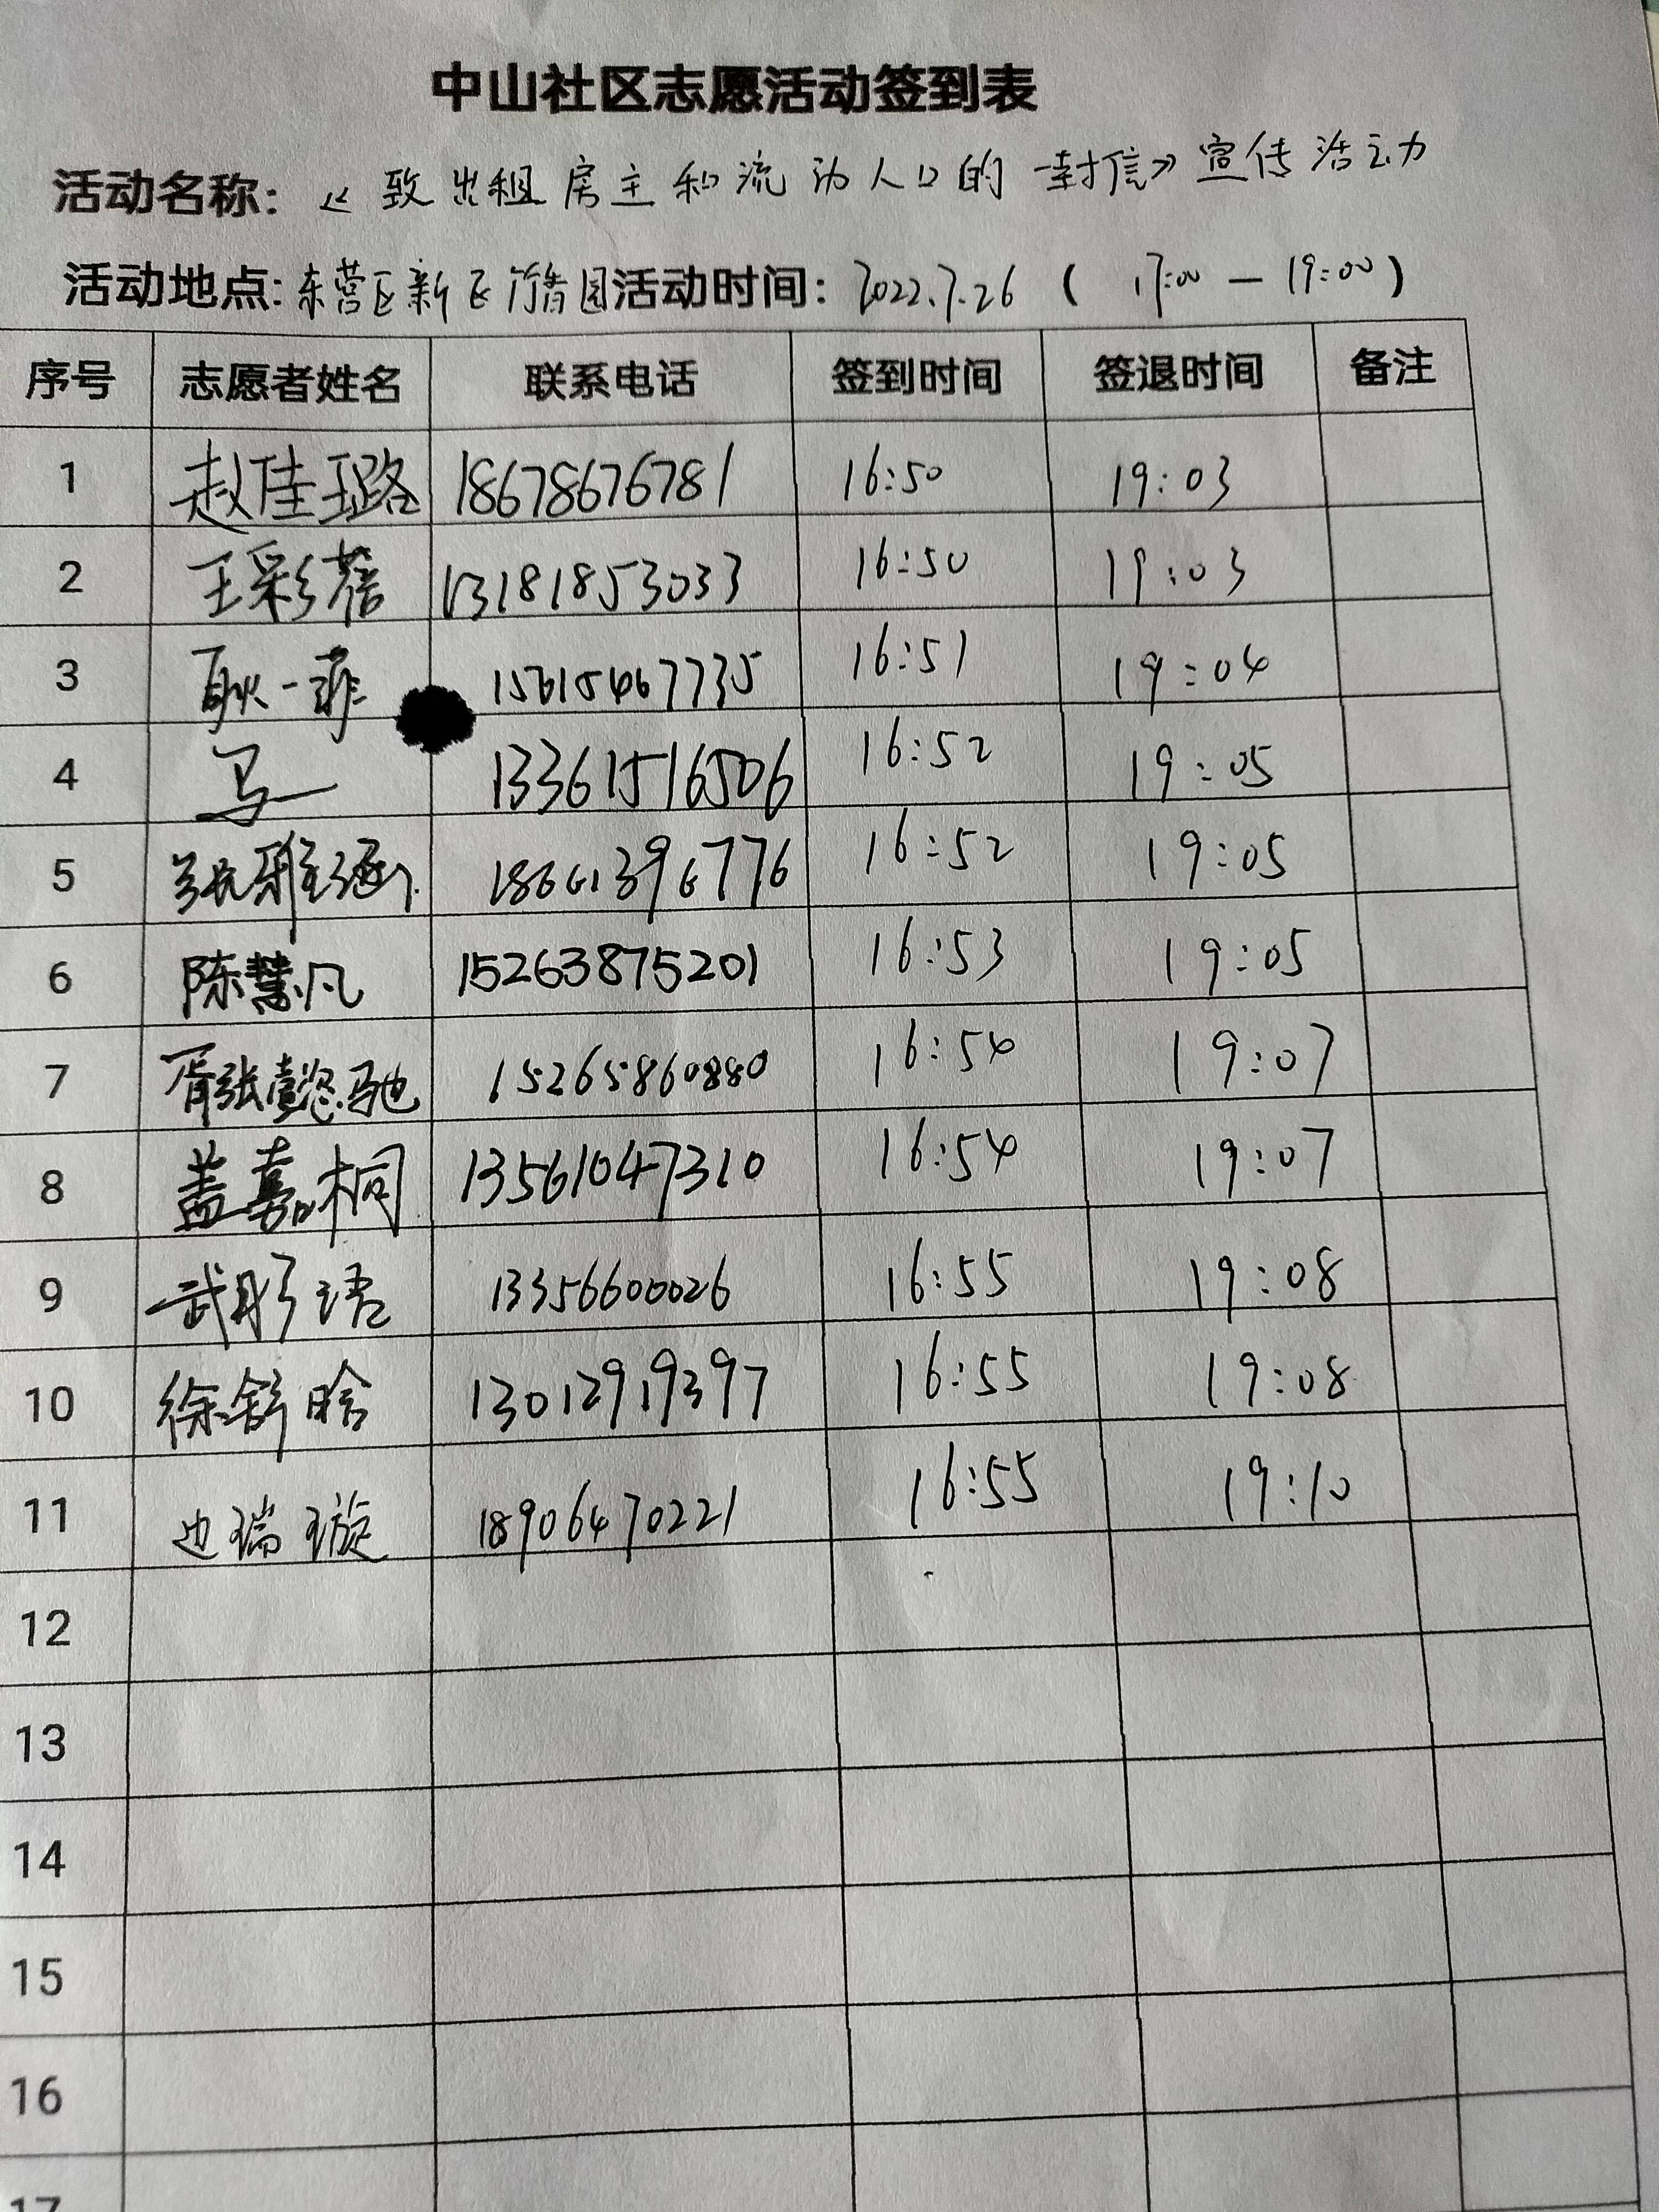 中山社区志愿活动签到表
活动名称: 《致出租房主和流动人口的一封信》宣传活动
活动地点: 东营区新 园 活动时间: 2022.7.26 ( 17:00 — 19:00 )
序号 志愿者姓名 联系电话 签到时间 签退时间 备注
1 赵佳璐 18678676781 16:50 19:03
2 王彩蓓 13181853033 16:50 19:03
3 耿一菲 15615467735 16:51 19:04
4 马一 13361516506 16:52 19:05
5 张雅涵 18661396776 16:52 19:05
6 陈慧凡 15263875201 16:53 19:05
7 胥张懿驰 15265860880 16:54 19:07
8 盖嘉桐 13561047310 16:54 19:07
9 武彤语 13356600026 16:55 19:08
10 徐舒晗 13012919397 16:55 19:08
11 边瑞璇 18906470221 16:55 19:10
12
13
14
15
16
17